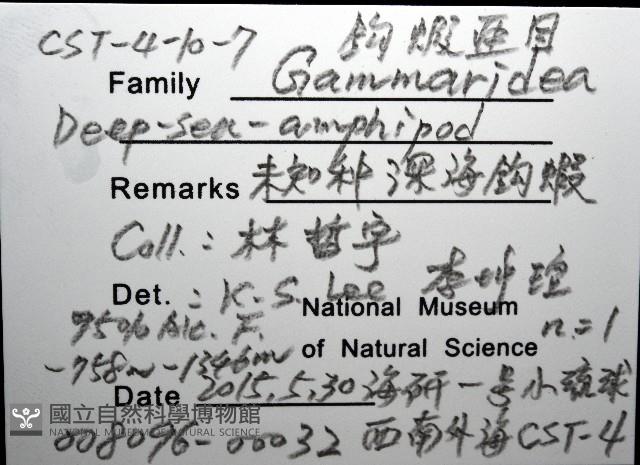 CST-4-10-7 鈎蝦亜目
Family Gammaridea
Deep-sea-amphipod
Remarks 未知科深海鈎蝦
Coll.: 林哲宇
Det.: K.S. Lee 李坤瑄
National Museum
75% Alc. F. n=1
of Natural Science
-758m -1346m
Date 2015.5.30 海研一号小琉球
國立自然科學博物館
NATIONAL MUSEUM OF NATURAL SCIENCE
008096-00032 西南外海CST-4